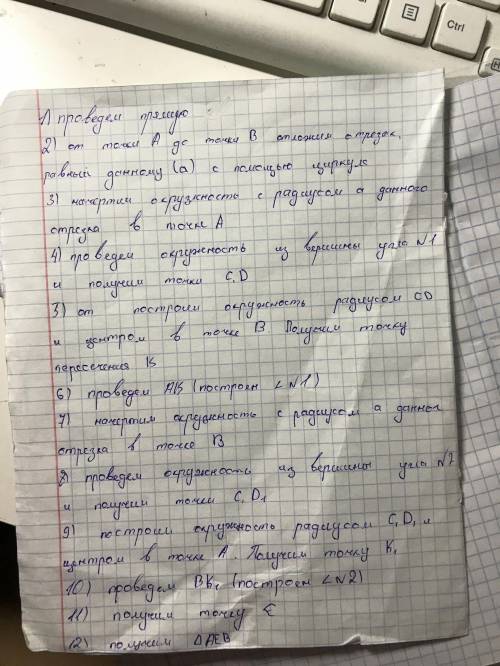 Ctrl
1) проведем прямую
2) от точки А до точки В отложим отрезок,
равный данному (a) с помощью циркуля
3) начертим окружность с радиусом а данного
отрезка в точке А
4) проведем окружность из вершины угла N1
и получим точки C, D
5) от построим окружность радиусом CD
и центром в точке В. Получим точку
пересечения К
6) проведем АК (построен ∠N1)
7) начертим окружность с радиусом а данного
отрезка в точке В
8) проведем окружность из вершины угла N2
и получим точки C₁D₁
9) построим окружность радиусом C₁D₁ и
центром в точке А. Получим точку K₁
10) проведем BK₁ (построен ∠N2)
11) получим точку E
12) получим ΔAEB